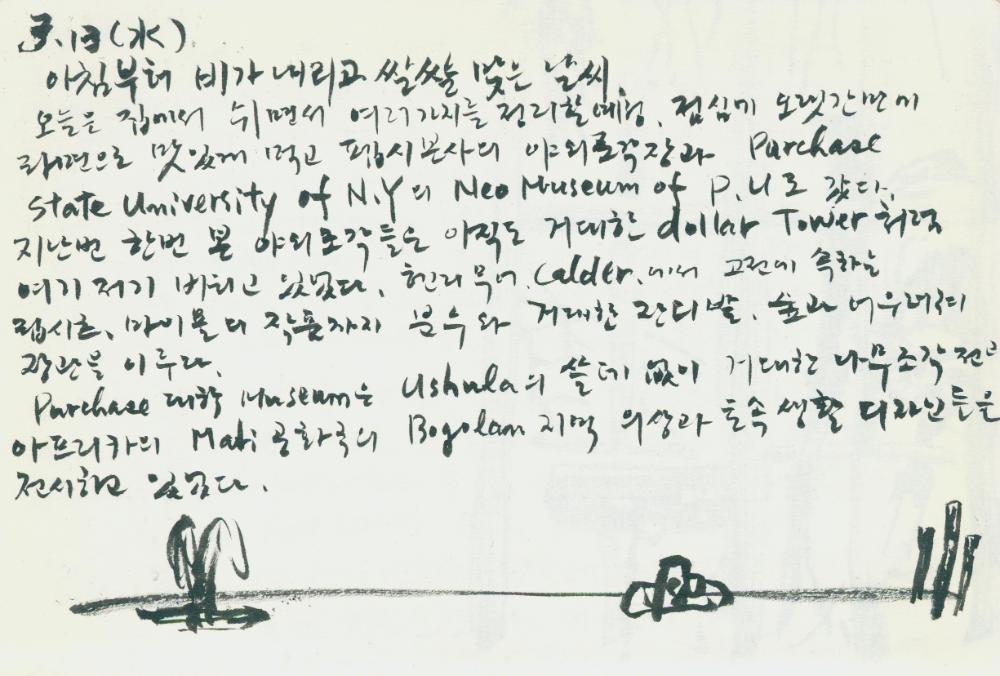 5.13(水)
아침부터 비가 내리고 쌀쌀 맞은 날씨.
오늘은 집에서 쉬면서 여러가지를 정리할 예정. 점심에 오랫간만에
라면으로 맛있게 먹고 펩시본사의 야외조각장과 Purchase
State University of N.Y의 Neo Museum of P.U로 갔다.
지난번 한번 본 야외조각들은 아직도 거대한 dollar Tower 처럼
여기 저기 버티고 있었다. 헨리무어. Calder. 에서 고전에 속하는
작품까지 분수와 거대한 잔디밭. 숲과 어우러져
장관을 이루다.
Purchase 대학 Museum은 Ushula의 쓸데 없이 거대한 나무조각전과
아프리카의 Mali 공화국의 Bogolam 지역 의상과 토속 생활 디자인들을
전시하고 있었다.